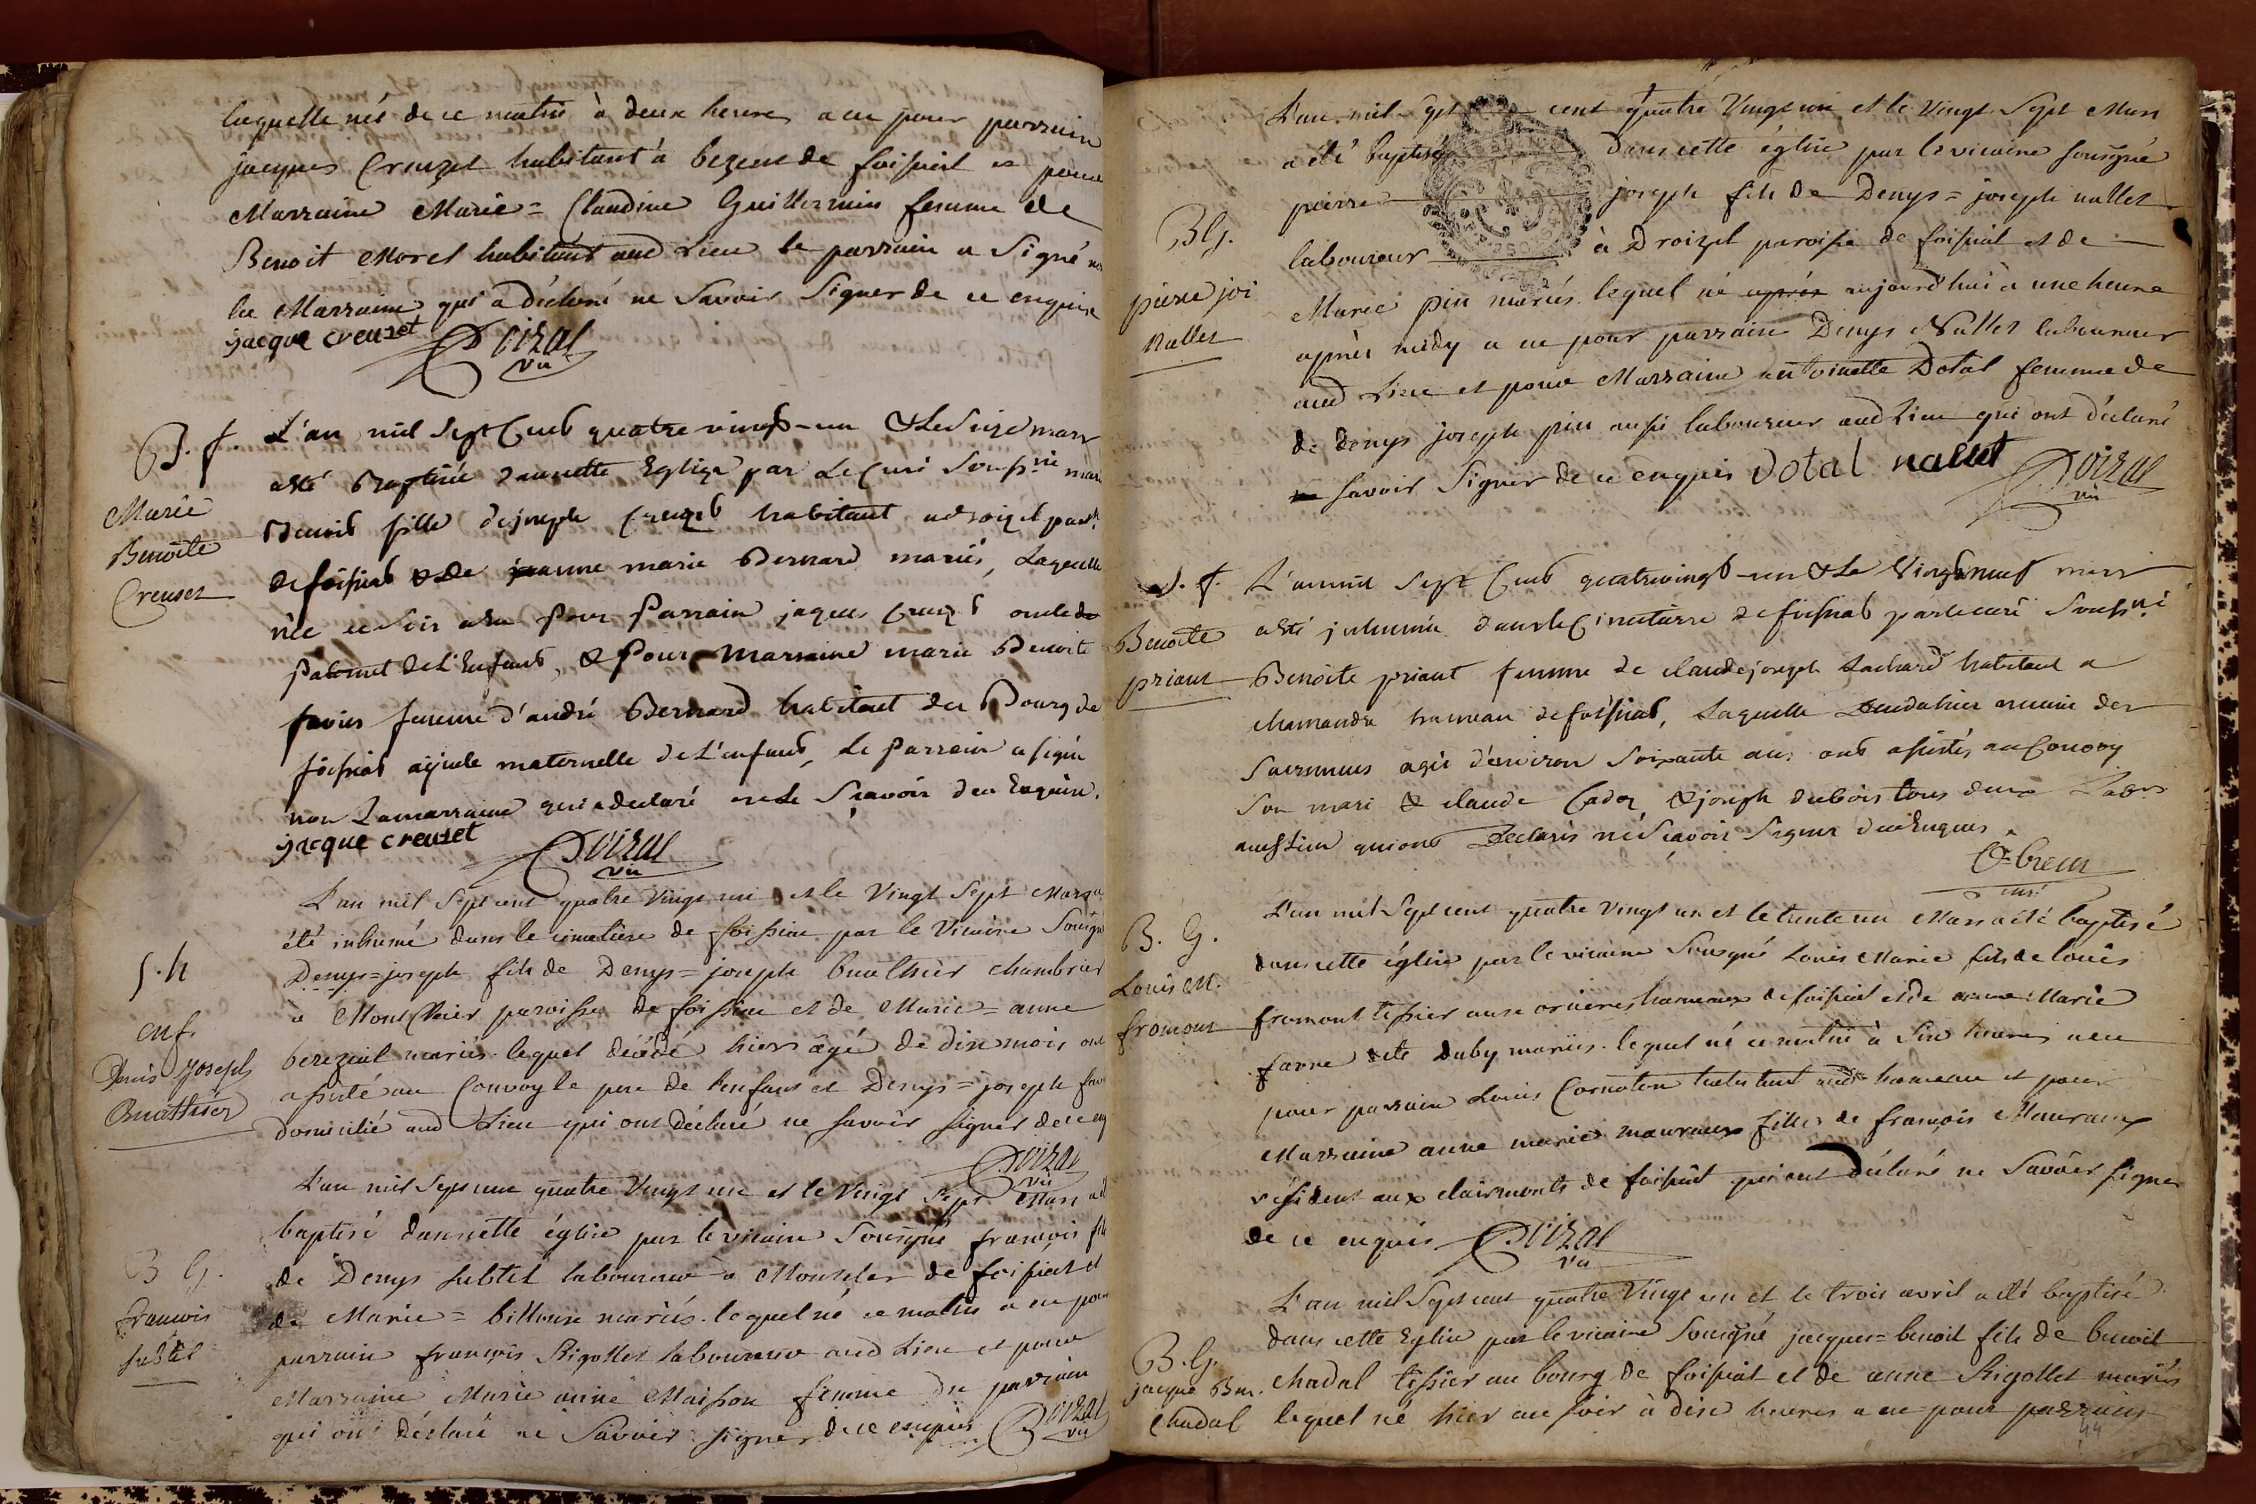 laquelle née de ce matin à deux heures a eu pour parrain
jacques Creuzet habitant à bezent de foissiat et pour
Marraine Marie = Claudine Guillermin femme de
Benoit Morel habitant aud Lieu le parrain a Signé non
la Marraine qui a déclaré ne Savoir Signer de ce enquise
jacque creuzet Doizal
vic
B. f.
Marie
Benoîte
Creuzet
L'an mil Sept Cent quatre vingt-un & Le Seize mars
a été Baptisée dans cette Eglize par Le Curé Soussné marie
Benoite fille de joseph Creuzet habitant a droizel parse
de foissiat & de jeanne marie Bernard mariés, Laquelle
née ce Soir a eu Pour Parrain jaques Creuzet oncle
Paternel de L'Enfant, & Pour Marraine marie Benoite
favier femme d'andré Bernard habitant du Bourg de
foissiat ayeule maternelle de L'enfant, Le Parrain a signé
non La marraine qui a declaré ne Le Sçavoir deu Enquise.
jacque creuzet Doizal
vic
S. h
enf.
Denis Joseph
Buathier
L'an mil Sept cent quatre Vingt un et le Vingt Sept Mars a
été inhumé dans le cimetière de foissiat par le Vicaire Sousigné
Denys = joseph fils de Denys = joseph buathier chambrier
à Mont paroisse de foissiat et de Marie = anne
bereziat mariés. lequel décédé hier âgé de dix mois ont
assisté au Convoy le pere de l'enfant et Denys = joseph
domicilié aud Lieu qui ont déclaré ne savoir signer de ce enq
Doizal
vic
B G.
francois
subtil
L'an mil Sept cent quatre Vingt un et le Vingt Sept Mars a été
baptisé dans cette église par le vicaire Sousigné françois fils
de Denys subtil laboureur a de foissiat et
de Marie = mariés. lequel né ce matin a eu pour
parrain françois Rigollet laboureur aud Lieu et pour
Marraine Marie anne Maisson femme du parrain
qui ont déclaré ne Savoir signer de ce enquis Doizal
vic
BG.
pierre jos
Nallet
L'an mil Sept cent quatre Vingt un et le Vingt Sept Mars
a été baptisé dans cette église par le vicaire sousigné
pierre joseph fils de Denys = joseph nallet
laboureur à Droizel paroisse de foissiat et de
Marie pin mariés. lequel né après aujourd'hui à une heure
après midy a eu pour parrain Denys Nallet laboureur
aud Lieu et pour Marraine antoinette Dotal femme de
de denys joseph pin aussi laboureur aud Lieu qui ont déclaré
savoir Signer de ce enquis dotal nallet Doizal
vic
S. f.
Benoîte
priant
L'an mil Sept Cent quatre vingt-un & Le Vingt neuf mars
a été inhumée dans le Cimetierre de foissiat par le curé Soussné
Benoîte priant femme de claude joseph habitant a
chamandre hameau de foissiat, Laquelle munie des
Sacremens agée d'environ Soixante ans, ont assistés au Convoy
Son mari & claude Cador, & joseph dubois tous deux Labrs
audt Lieu qui ont Declarés né Sçavoir Signer de ce Enquis.
curé
B. G.
Louis M.
fromont
L'an mil Sept cent quatre Vingt un et le trente un Mars a été baptisé
dans cette église par le vicaire Sousigné Louis Marie fils de loüis
fromont tissier aux orsières hameau de foissiat et de anne = Marie
dite Duby mariés. lequel né ce matin à Six heures a eu
pour parrain Louis Cornaton habitant aud. hameau et pour
Marraine anne marie fille de françois
résident aux clairmonts de foissiat qui ont déclaré ne Savoir signer
de ce enquis Doizal
vic
B. G.
jacque Ben.
Chadal
L'an mil Sept cent quatre Vingt un et le trois avril a été baptisé
dans cette Eglise par le vicaire Sousigné jacques = benoit fils de benoit
chadal tissier au bourg de foissiat et de anne Rigollet mariés
lequel né hier au soir à dix heures a eu pour parrain
44